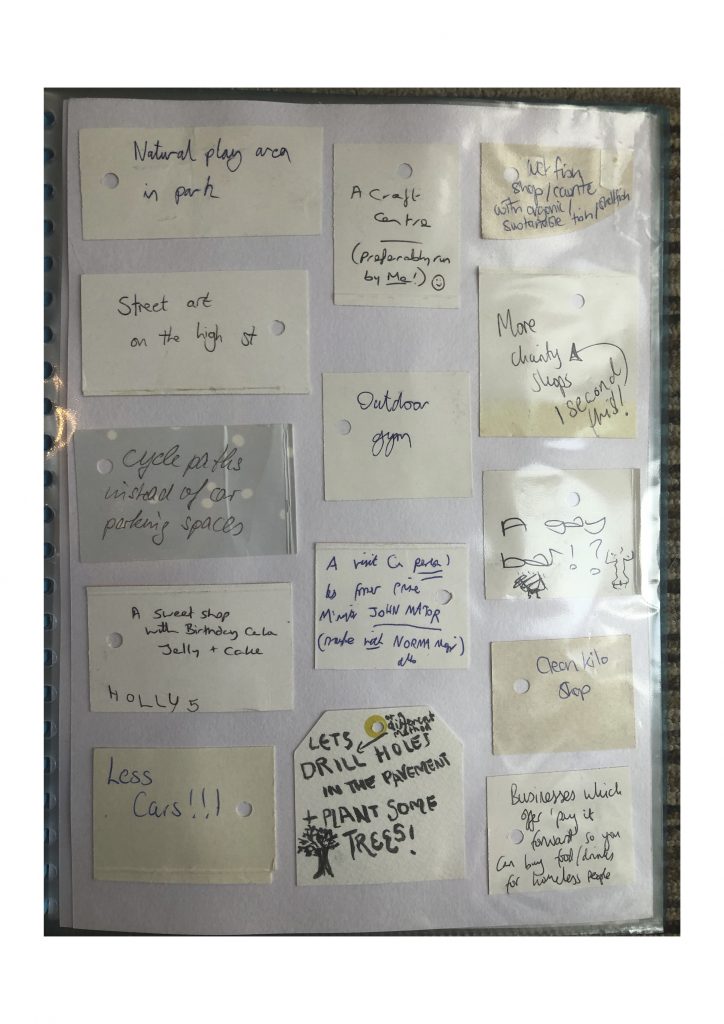 Natural play area
in park
Street art
on the high st
Cycle paths
instead of car
parking spaces
A sweet shop
with Birthday Cake
Jelly + Cake
HOLLY 5
Less
Cars!!!
A Craft
Centre
(Preferably run
by Me!)
Outdoor
gym
A visit
to
JOHN MAJOR
(maybe with NORMA
LETS
DRILL HOLES
or a
different
method
IN THE PAVEMENT
+ PLANT SOME
TREES!
wet fish
shop/
with organic/
fish/shellfish
More
charity
shops
I second
this!
A gay
bar!?
Clean kilo
shop
Businesses which
offer 'pay it
forward' so you
can buy food/drinks
for homeless people